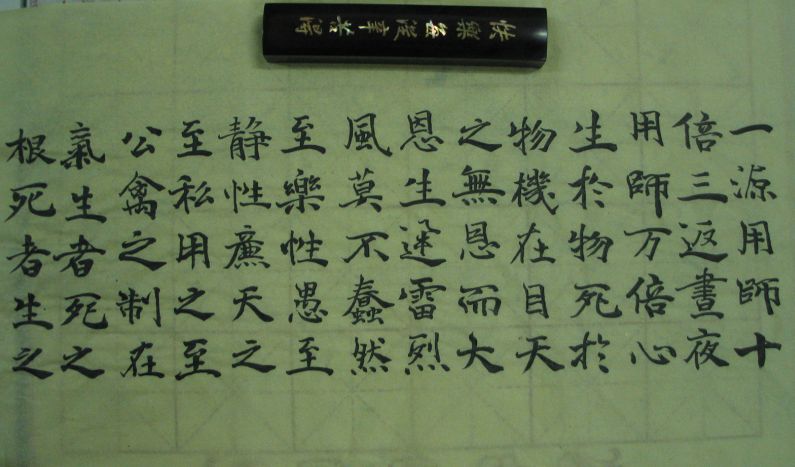 快樂每從辛苦得
一源用師十
倍三返晝夜
用師万倍心
生於物死於
物機在目天
之無恩而大
恩生迅雷烈
風莫不蠢然
至樂性愚至
静性廉天之
至私用之至
公禽之制在
氣生者死之
根死者生之